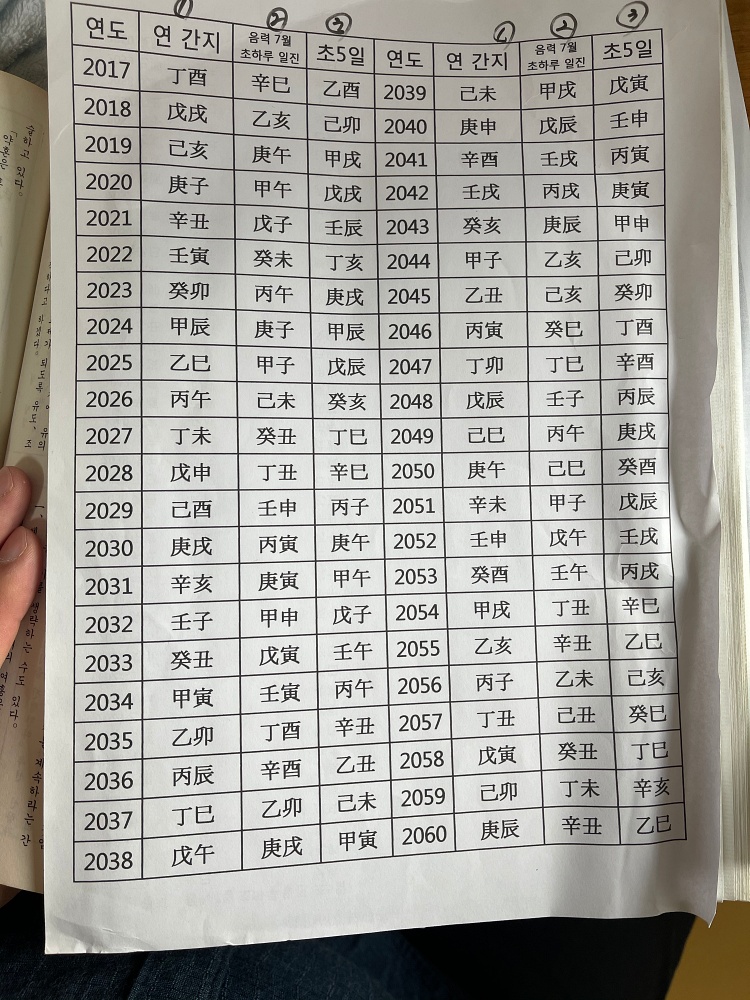 ① ② ③ ① ② ③
연도 연 간지 음력 7월 초하루 일진 초5일 연도 연 간지 음력 7월 초하루 일진 초5일
2017 丁酉 辛巳 乙酉 2039 己未 甲戌 戊寅
2018 戊戌 乙亥 己卯 2040 庚申 戊辰 壬申
2019 己亥 庚午 甲戌 2041 辛酉 壬戌 丙寅
2020 庚子 甲午 戊戌 2042 壬戌 丙戌 庚寅
2021 辛丑 戊子 壬辰 2043 癸亥 庚辰 甲申
2022 壬寅 癸未 丁亥 2044 甲子 乙亥 己卯
2023 癸卯 丙午 庚戌 2045 乙丑 己亥 癸卯
2024 甲辰 庚子 甲辰 2046 丙寅 癸巳 丁酉
2025 乙巳 甲子 戊辰 2047 丁卯 丁巳 辛酉
2026 丙午 己未 癸亥 2048 戊辰 壬子 丙辰
2027 丁未 癸丑 丁巳 2049 己巳 丙午 庚戌
2028 戊申 丁丑 辛巳 2050 庚午 己巳 癸酉
2029 己酉 壬申 丙子 2051 辛未 甲子 戊辰
2030 庚戌 丙寅 庚午 2052 壬申 戊午 壬戌
2031 辛亥 庚寅 甲午 2053 癸酉 壬午 丙戌
2032 壬子 甲申 戊子 2054 甲戌 丁丑 辛巳
2033 癸丑 戊寅 壬午 2055 乙亥 辛丑 乙巳
2034 甲寅 壬寅 丙午 2056 丙子 乙未 己亥
2035 乙卯 丁酉 辛丑 2057 丁丑 己丑 癸巳
2036 丙辰 辛酉 乙丑 2058 戊寅 癸丑 丁巳
2037 丁巳 乙卯 己未 2059 己卯 丁未 辛亥
2038 戊午 庚戌 甲寅 2060 庚辰 辛丑 乙巳